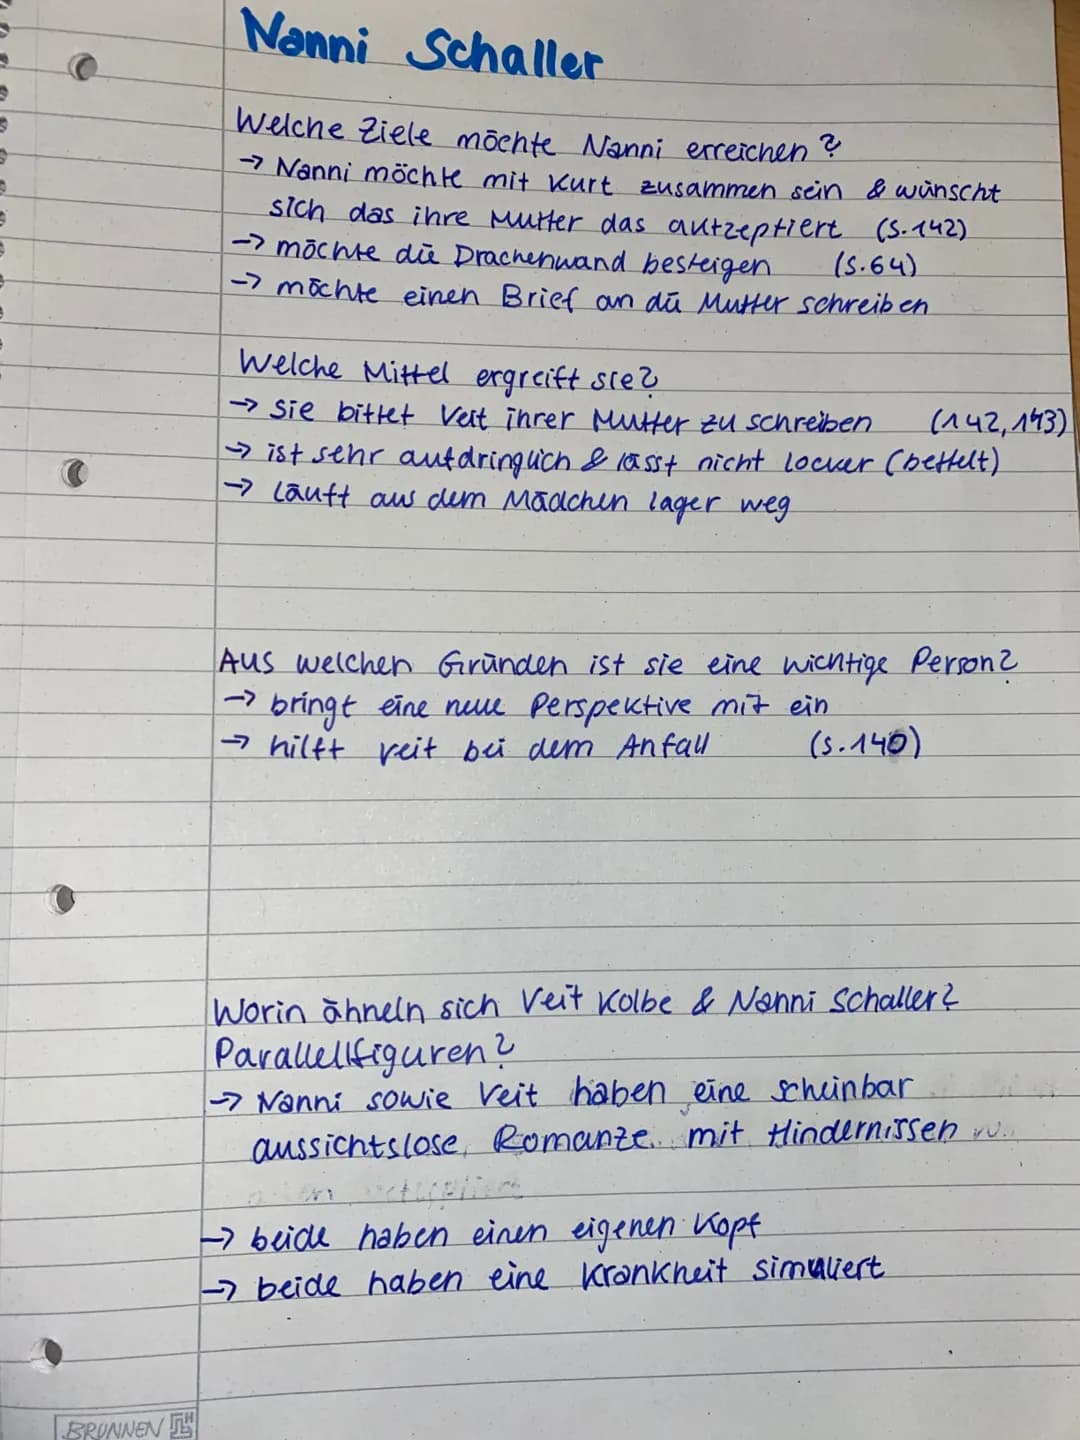 Nanni Schaller
Welche Ziele möchte Nanni erreichen?
→ Nanni möchte mit Kurt zusammen sein & wünscht
sich das ihre Mutter das autzeptiert (S.142)
→ möchte die Drachenwand besteigen (S.64)
→ möchte einen Brief an die Mutter schreiben
Welche Mittel ergreift sie?
→ sie bittet Veit ihrer Mutter zu schreiben (142, 143)
→ ist sehr aufdringlich & lässt nicht locker (bettelt)
→ läuft aus dem Mädchen lager weg
Aus welchen Gründen ist sie eine wichtige Person?
→ bringt eine neue Perspektive mit ein
→ hilft veit bei dem Anfall (S.140)
Worin ähneln sich Veit Kolbe & Nanni Schaller?
Parallellfiguren?
→ Nanni sowie Veit haben eine scheinbar
aussichtslose Romanze mit Hindernissen
→ beide haben einen eigenen Kopf
→ beide haben eine Krankheit simuliert
BRUNNEN